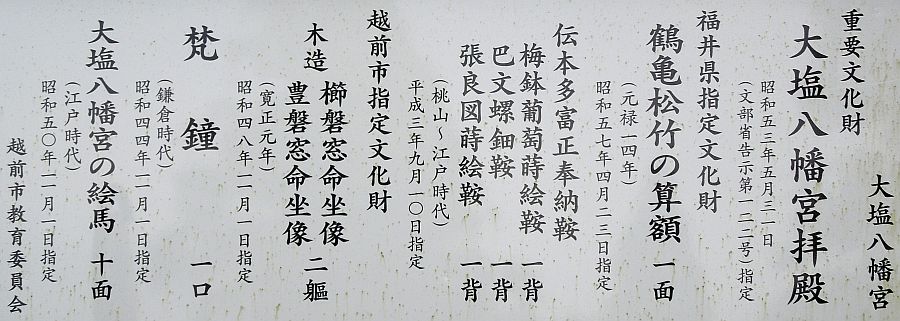 大塩八幡宮
重要文化財
大塩八幡宮拝殿
昭和五三年五月三一日
(文部省告示第一二二号)指定
福井県指定文化財
鶴亀松竹の算額 一面
(元禄一四年)
昭和五七年四月二三日指定
伝本多富正奉納鞍
梅鉢葡萄蒔絵鞍 一背
巴文螺鈿鞍 一背
張良図蒔絵鞍 一背
(桃山～江戸時代)
平成三年九月一〇日指定
越前市指定文化財
木造 櫛磐窓命坐像
豊磐窓命坐像 二軀
(寛正元年)
昭和四八年一一月一日指定
梵鐘 一口
(鎌倉時代)
昭和四四年一一月一日指定
大塩八幡宮の絵馬 十面
(江戸時代)
昭和五〇年一一月一日指定
越前市教育委員会